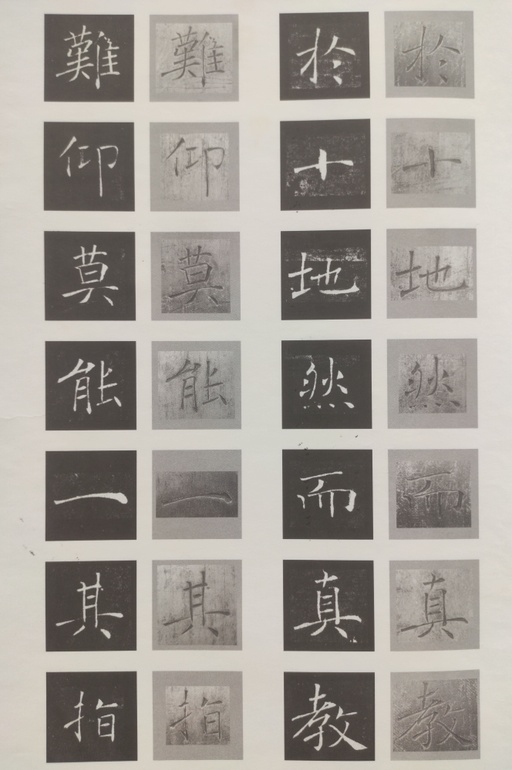 於十地然而真教
於十地然而真教
難仰莫能一其指
難仰莫能一其指